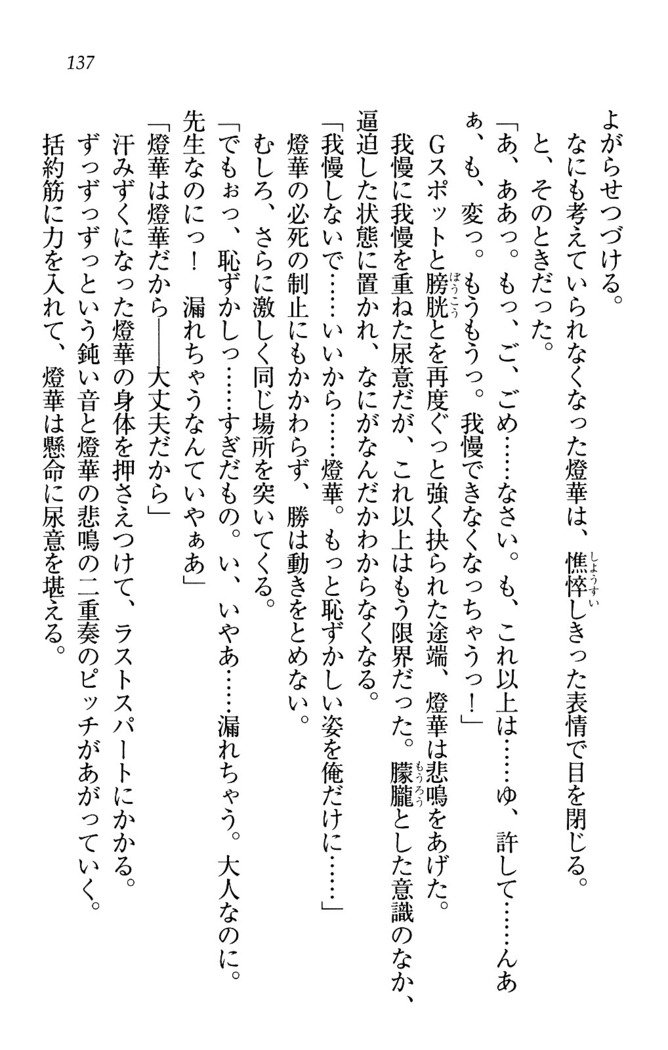 137
よがらせつづける。
なにも考えていられなくなった燈華は、憔悴しきった表情で目を閉じる。
しようすい
と、そのときだった。
「あ、ああっ。もっ、ご、ごめ……なさい。も、これ以上は……ゆ、許して……んあ
ぁ、も、変っ。もうもうっ。我慢できなくなっちゃうっ！」
Ｇスポットと膀胱とを再度ぐっと強く抉られた途端、燈華は悲鳴をあげた。
ぼうこう
我慢に我慢を重ねた尿意だが、これ以上はもう限界だった。朦朧とした意識のなか、
もうろう
逼迫した状態に置かれ、なにがなんだかわからなくなる。
「我慢しないで……いいから……燈華。もっと恥ずかしい姿を俺だけに……」
燈華の必死の制止にもかかわらず、勝は動きをとめない。
むしろ、さらに激しく同じ場所を突いてくる。
「でもぉっ、恥ずかしっ……すぎだもの。い、いやあ……漏れちゃう。大人なのに。
先生なのにっ！　漏れちゃうなんていやぁあ」
「燈華は燈華だから――大丈夫だから」
汗みずくになった燈華の身体を押さえつけて、ラストスパートにかかる。
ずっずっずっという鈍い音と燈華の悲鳴の二重奏のピッチがあがっていく。
括約筋に力を入れて、燈華は懸命に尿意を堪える。